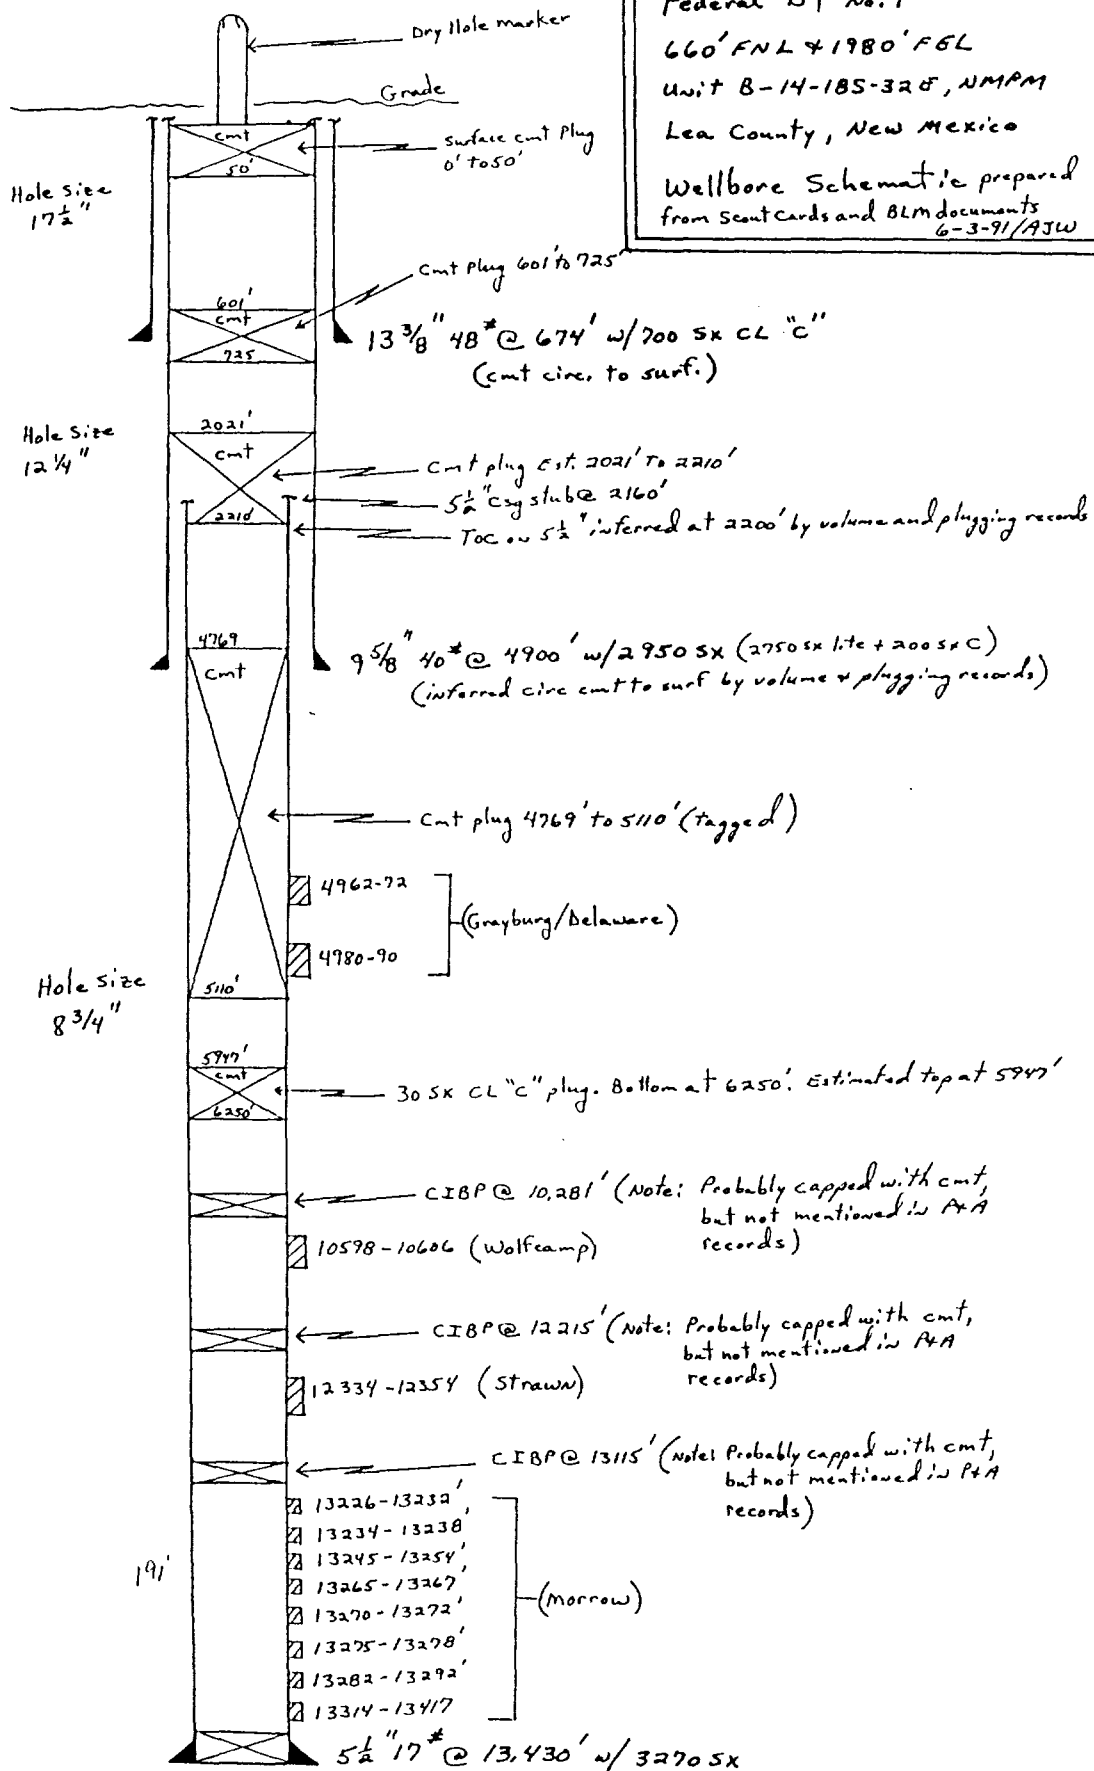 Federal "DJ" No. 1
660' FNL & 1980' FEL
Unit B-14-18S-32E, NMPM
Lea County, New Mexico
Wellbore Schematic prepared
from Scout Cards and BLM documents
6-3-91/AJW
Dry Hole marker
Grade
cmt
50'
Surface cmt Plug
0' to 50'
Hole Size
17 1/2"
Cmt Plug 601' to 725'
601'
cmt
725
13 3/8" 48# @ 674' w/700 sx CL "C"
(cmt circ. to surf.)
Hole Size
12 1/4"
2021'
cmt
2210'
Cmt plug Est. 2021' To 2210'
5 1/2" csg stub @ 2160'
TOC on 5 1/2" inferred at 2200' by volume and plugging records
4769
cmt
9 5/8" 40# @ 4900' w/2950 sx (2750 sx lite + 200 sx C)
(inferred circ cmt to surf by volume & plugging records)
Cmt plug 4769' to 5110' (tagged)
4962-72
(Grayburg/Delaware)
4980-90
Hole Size
8 3/4"
5110'
5947'
cmt
6250'
30 sx CL "C" plug. Bottom at 6250'. Estimated top at 5947'
CIBP @ 10,281' (Note: Probably capped with cmt,
but not mentioned in P&A
records)
10598-10606 (Wolfcamp)
CIBP @ 12215' (Note: Probably capped with cmt,
but not mentioned in P&A
records)
12334-12354 (Strawn)
CIBP @ 13115' (Note: Probably capped with cmt,
but not mentioned in P&A
records)
13226-13232',
13234-13238'
13245-13254',
13265-13267'
13270-13272'
13275-13278'
13282-13292'
13314-13417
(Morrow)
191'
5 1/2" 17# @ 13,430' w/ 3270 sx